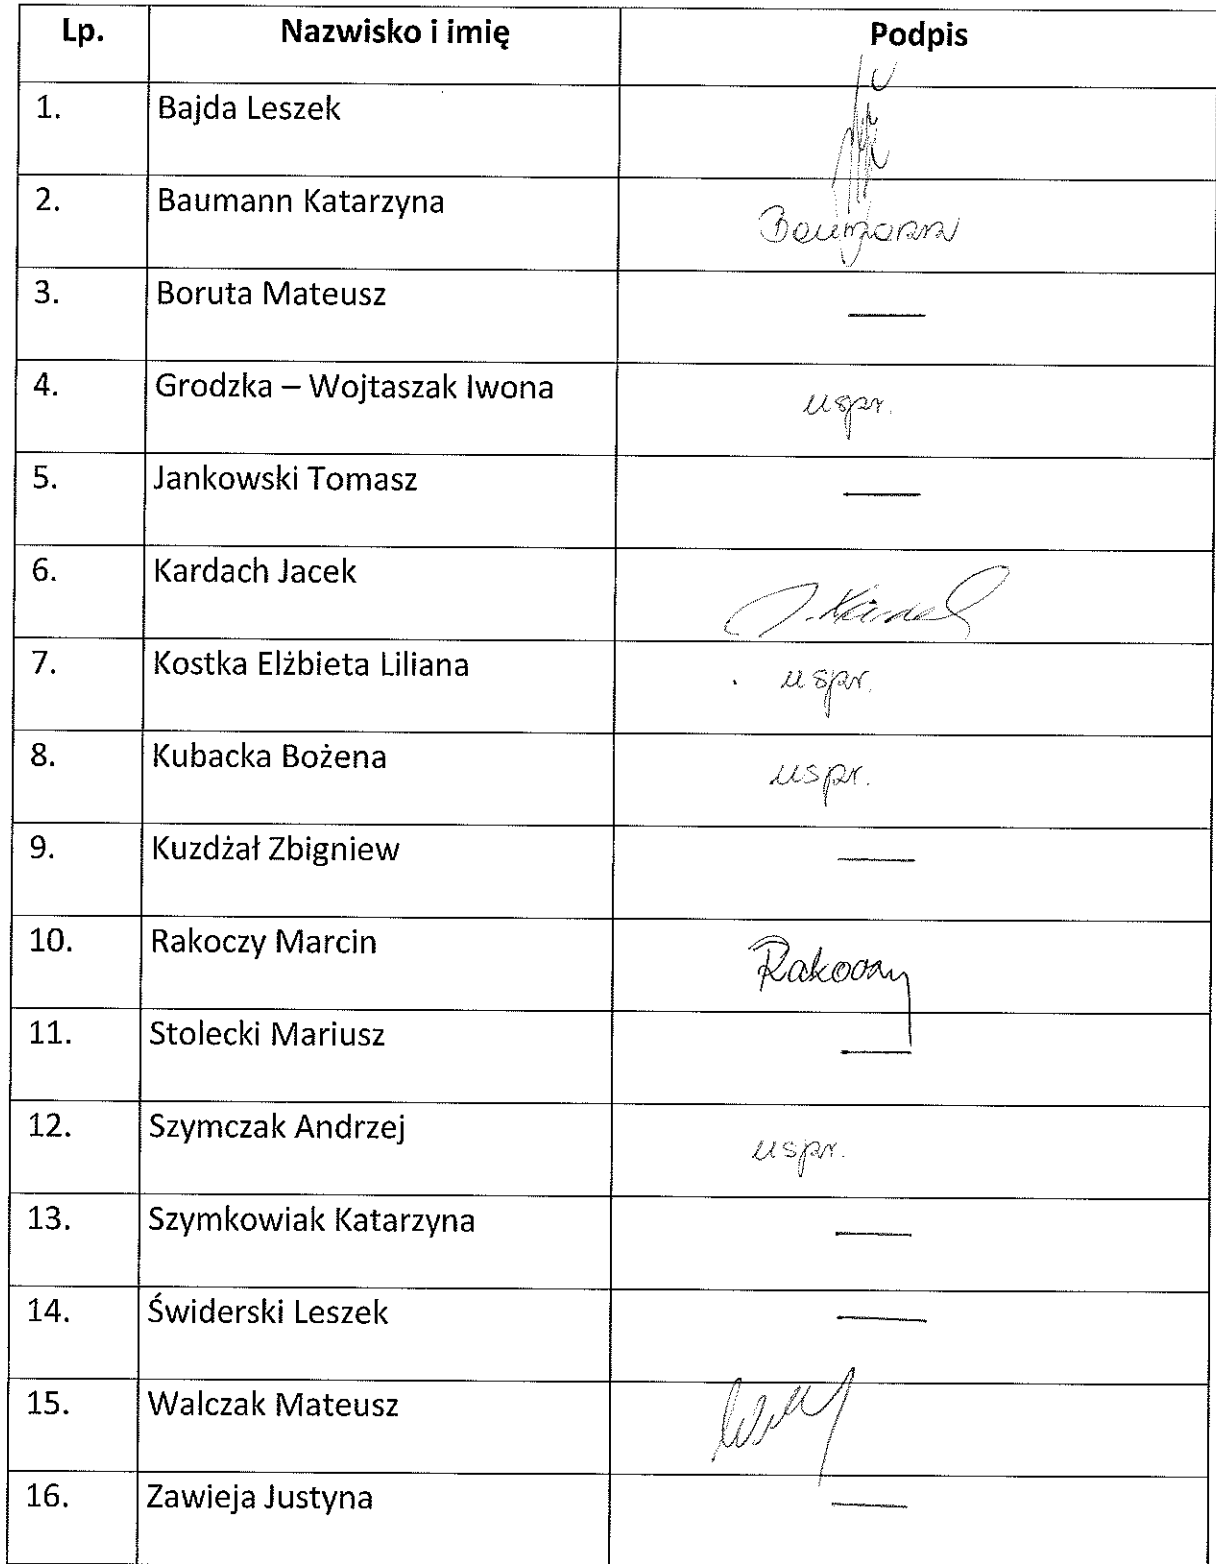 Lp. Nazwisko i imię Podpis
1. Bajda Leszek
2. Baumann Katarzyna Baumann
3. Boruta Mateusz —
4. Grodzka – Wojtaszak Iwona uspr.
5. Jankowski Tomasz —
6. Kardach Jacek
7. Kostka Elżbieta Liliana uspr.
8. Kubacka Bożena uspr.
9. Kuzdżał Zbigniew —
10. Rakoczy Marcin Rakoczy
11. Stolecki Mariusz —
12. Szymczak Andrzej uspr.
13. Szymkowiak Katarzyna —
14. Świderski Leszek —
15. Walczak Mateusz
16. Zawieja Justyna —